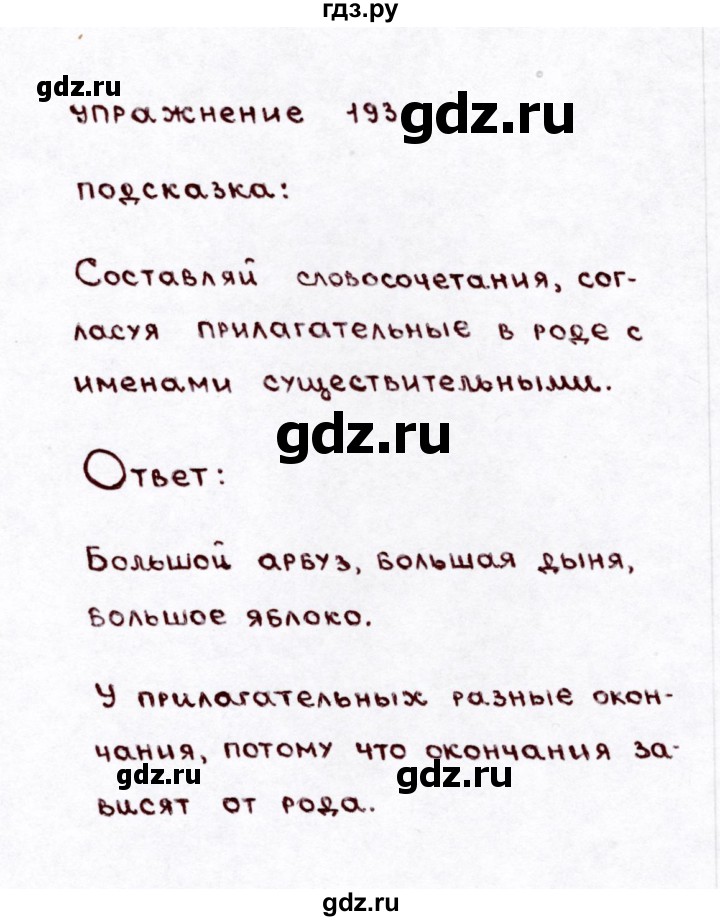 гдз.ру
gdz.ru
упражнение 193
gdz.ru
подсказка:
Составляй словосочетания, сог-
ласуя прилагательные в роде с
именами существительными.
gdz.ru
Ответ:
Большой арбуз, большая дыня,
большое яблоко.
У прилагательных разные окон-
чания, потому что окончания за-
gdz.ru
gdz.ru
висят от рода.
gdz.ru